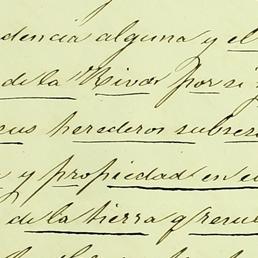 dencia alguna y el
de la Riva por si y
sus herederos subces
y propiedad en
de la tierra q resu